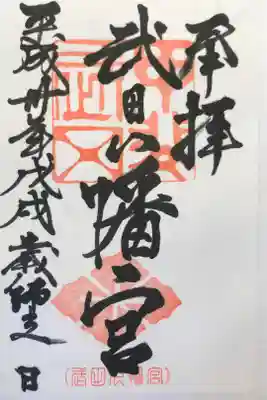 奉拝
武田八幡宮
平成卅年戊戌歳師走 日